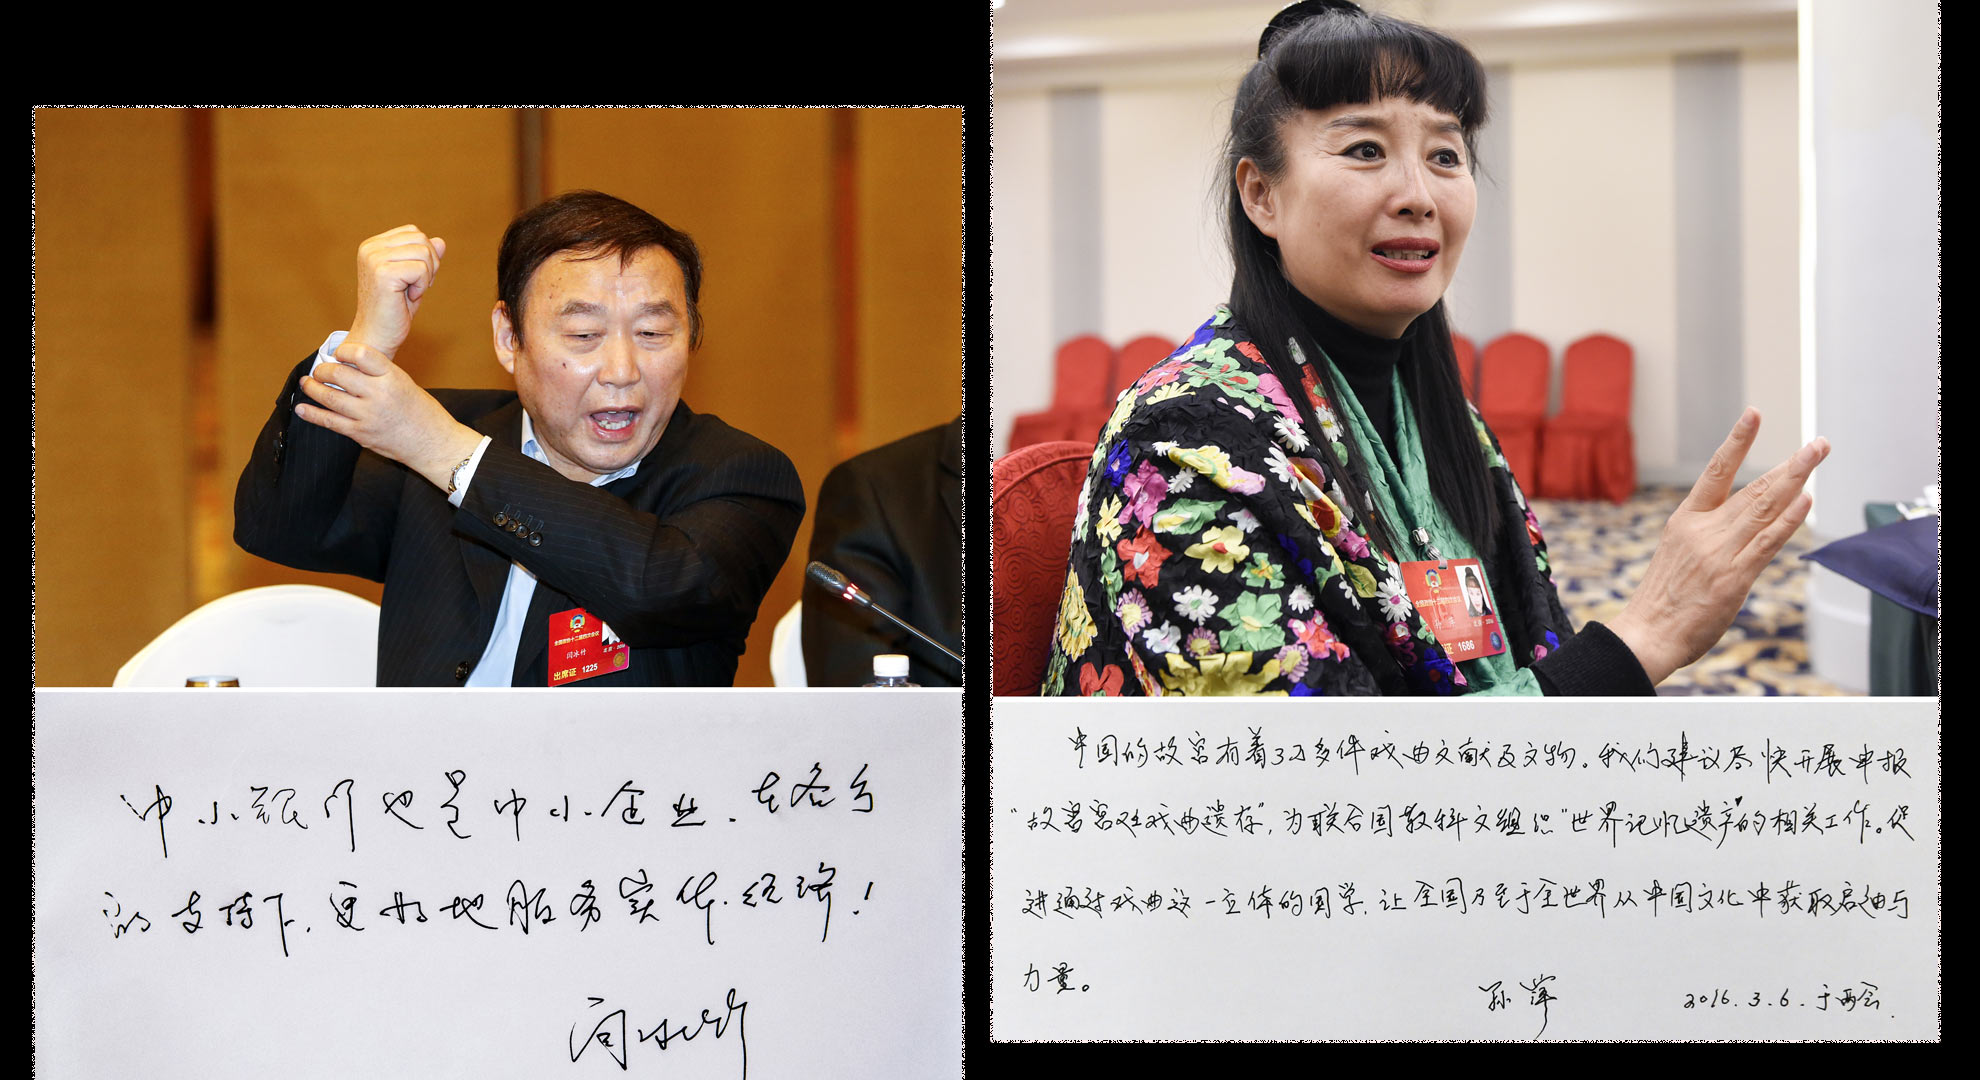 全国政协十二届四次会议
北京·2016
闫冰竹
出席证 1225
中小银行也是中小企业.在各方
的支持下,更好地服务实体经济!
闫冰竹
全国政协十二届四次会议
北京·2016
孙萍
证 1686
中国的故宫有着3万多件戏曲文献及文物。我们建议尽快开展申报
“故宫宫廷戏曲遗存”,为联合国教科文组织“世界记忆遗产”的相关工作。促
进通过戏曲这一立体的国学,让全国乃至于全世界从中国文化中获取启迪与
力量。
孙萍 2016.3.6.于两会.